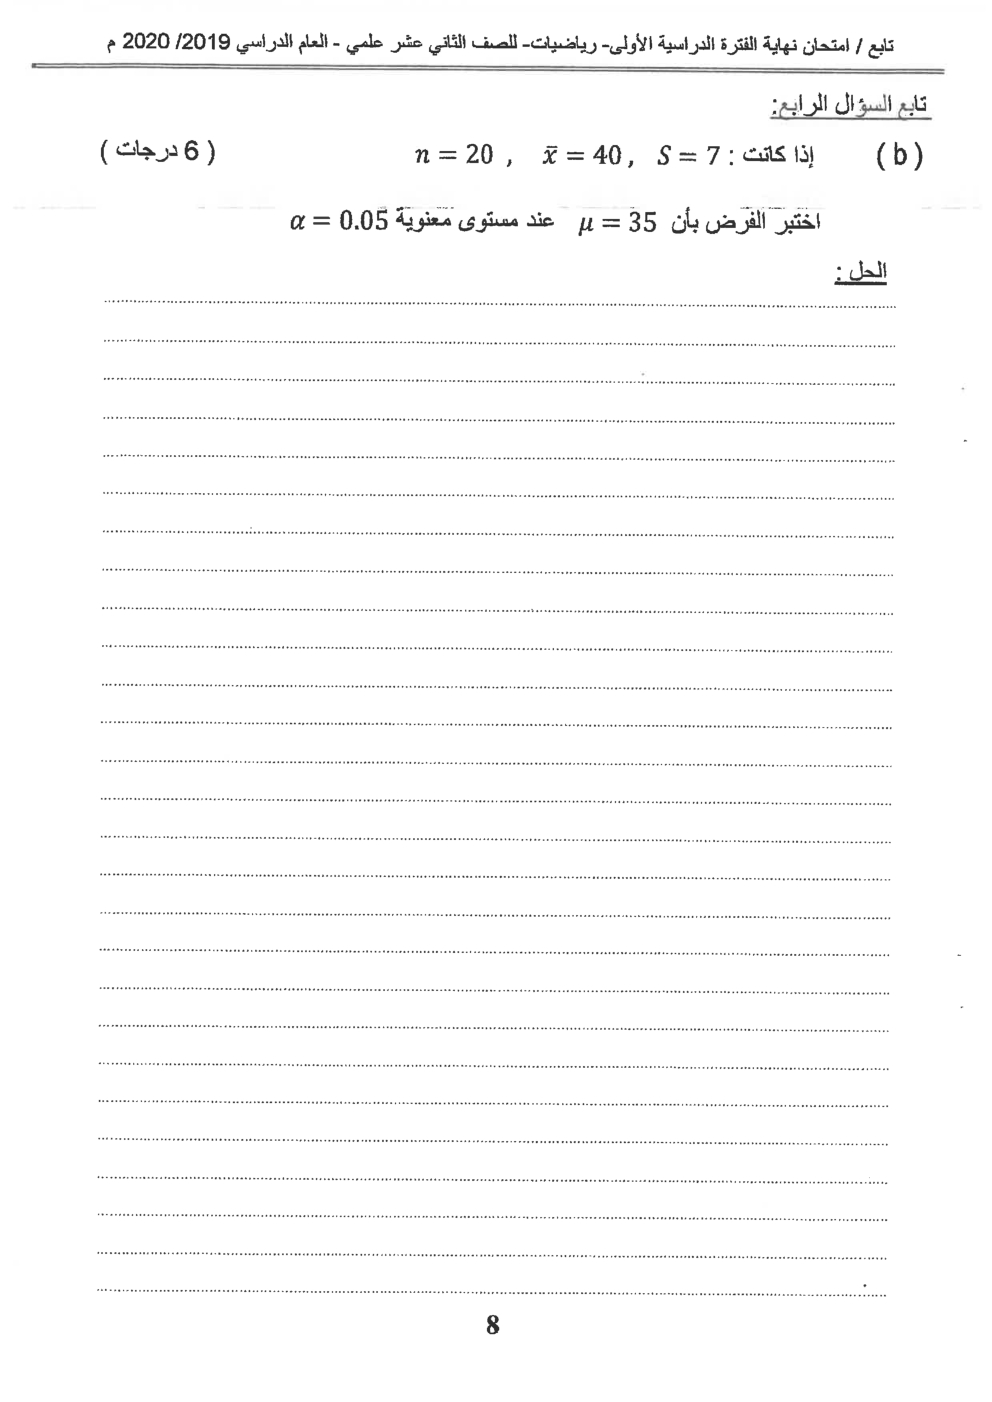 تابع / امتحان نهاية الفترة الدراسية الأولى- رياضيات- للصف الثاني عشر علمي - العام الدراسي 2019/ 2020 م
تابع السؤال الرابع:
( b ) إذا كانت : n = 20 , x̄ = 40 , S = 7 ( 6 درجات )
اختبر الفرض بأن μ = 35 عند مستوى معنوية α = 0.05
الحل :
8